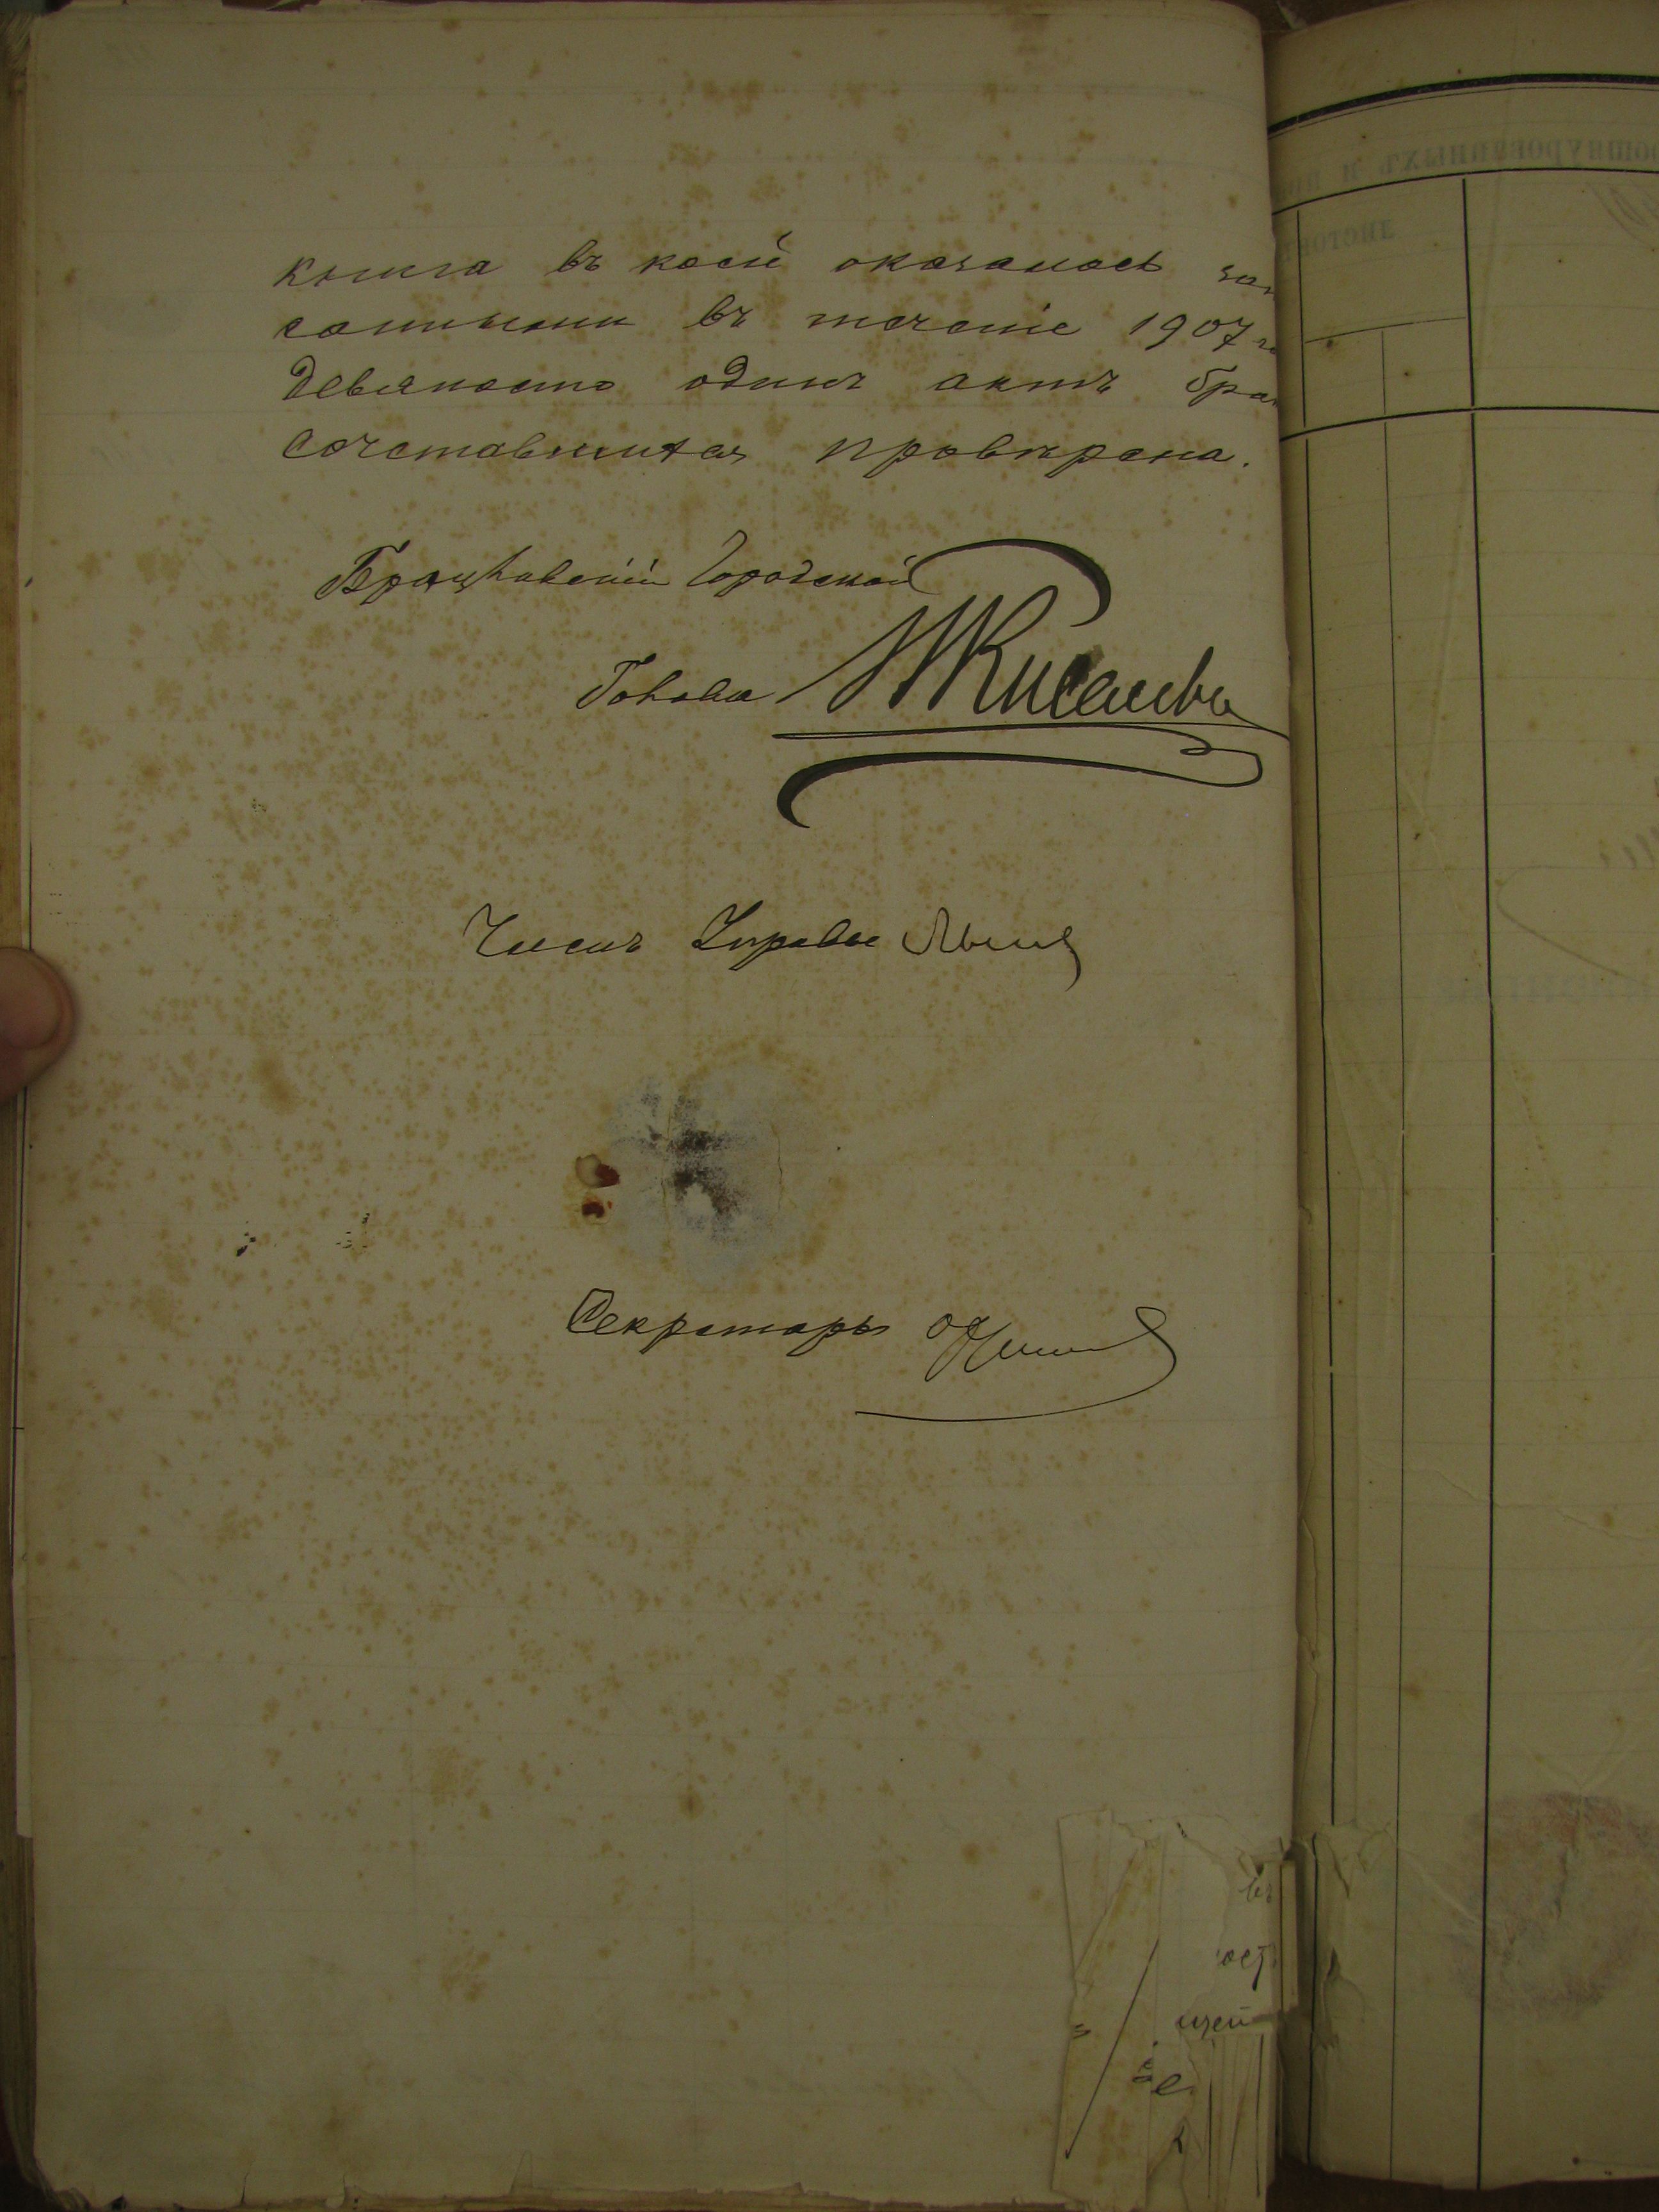 книга въ коей оказалось запи
санными въ теченіе 1907 го
девяносто одинъ актъ бра
сочетавшихся провѣрена.
Брацлавскій Городской
Голова Киселевъ
Членъ Управы
Секретарь
въ
ост
щей
е